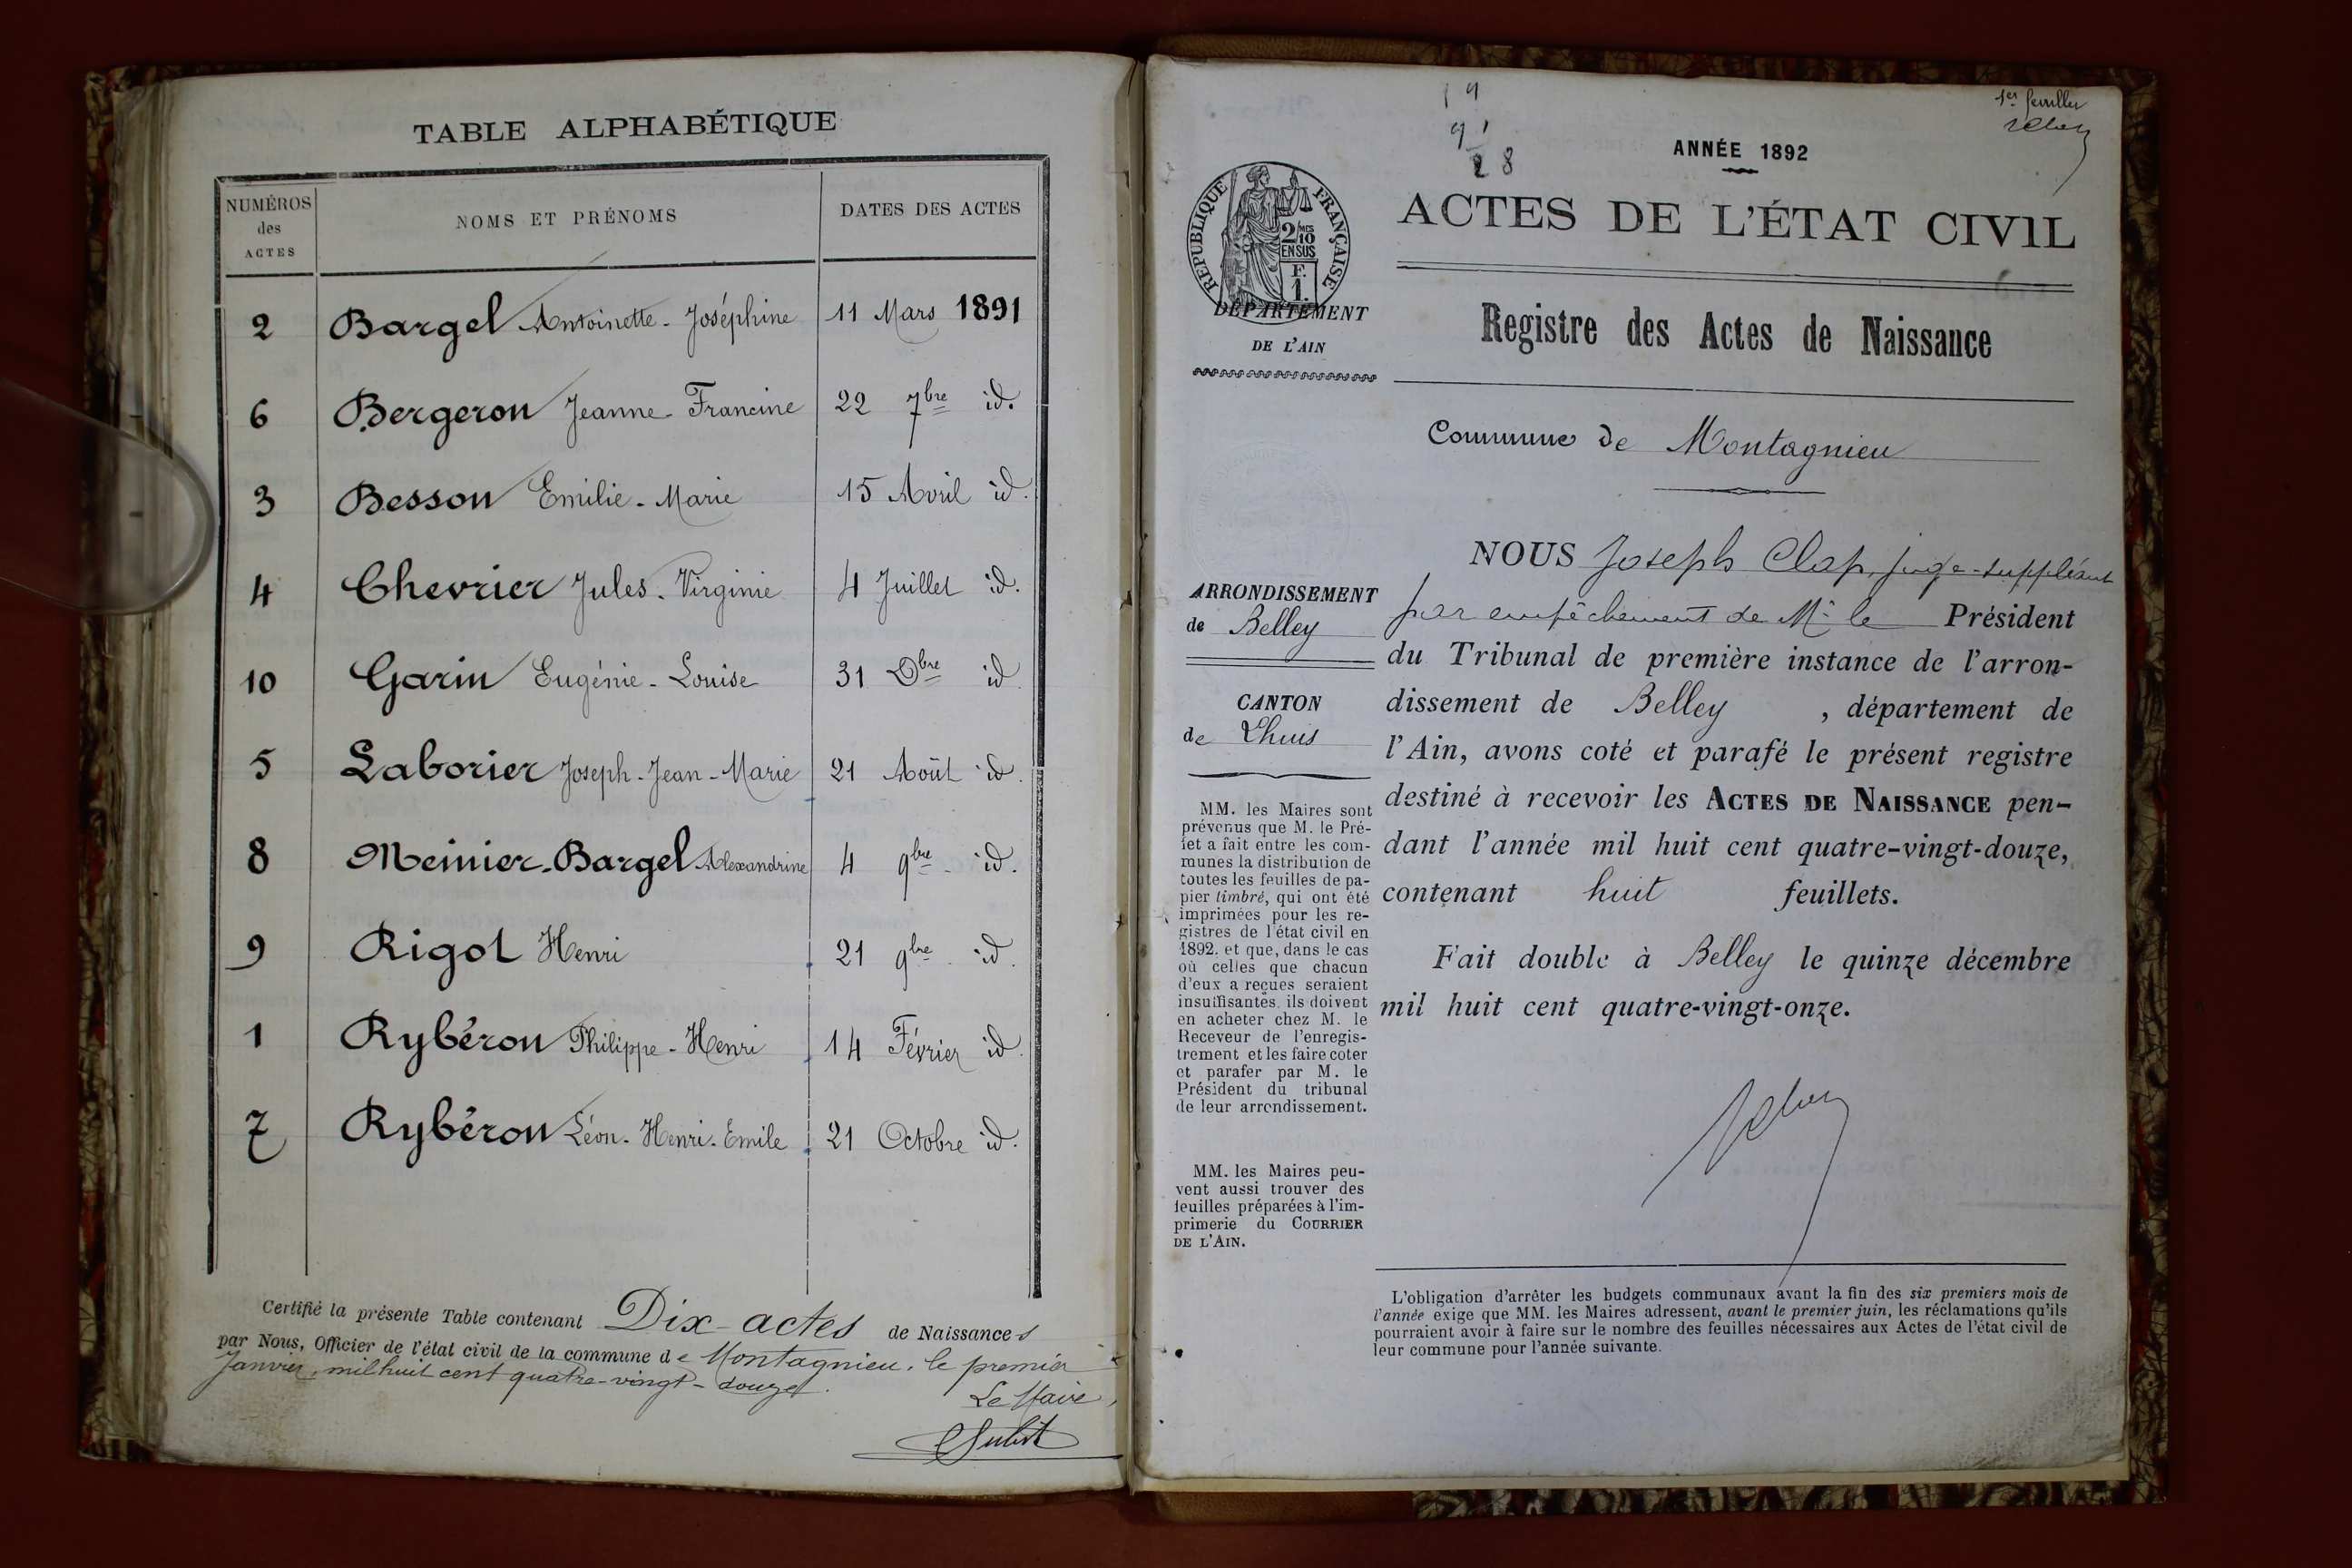 TABLE ALPHABÉTIQUE
NUMÉROS des ACTES NOMS ET PRÉNOMS DATES DES ACTES
2 Bargel Antoinette-Joséphine 11 Mars 1891
6 Bergeron Jeanne-Francine 22 7bre id.
3 Besson Emilie-Marie 15 Avril id.
4 Chevrier Jules-Virginie 4 Juillet id.
10 Garin Eugénie-Louise 31 Dbre id.
5 Laborier Joseph-Jean-Marie 21 Août id.
8 Meinier-Bargel Alexandrine 4 9bre id.
9 Rigot Henri 21 9bre id.
1 Rybéron Philippe-Henri 14 Février id.
7 Rybéron Léon-Henri-Emile 21 Octobre id.
Certifié la présente Table contenant Dix actes de Naissances
par Nous, Officier de l'état civil de la commune de Montagnieu, le premier
Janvier, mil huit cent quatre-vingt-douze.
Le Maire,
1er feuillet
ANNÉE 1892
ACTES DE L'ÉTAT CIVIL
RÉPUBLIQUE FRANÇAISE
2/10 MES
EN SUS
F.
1.
DÉPARTEMENT
DE L'AIN
Registre des Actes de Naissance
Commune de Montagnieu
ARRONDISSEMENT
de Belley
CANTON
de Lhuis
MM. les Maires sont
prévenus que M. le Pré-
fet a fait entre les com-
munes la distribution de
toutes les feuilles de pa-
pier timbré, qui ont été
imprimées pour les re-
gistres de l'état civil en
1892. et que, dans le cas
où celles que chacun
d'eux a reçues seraient
insuffisantes, ils doivent
en acheter chez M. le
Receveur de l'enregis-
trement et les faire coter
et parafer par M. le
Président du tribunal
de leur arrondissement.
MM. les Maires peu-
vent aussi trouver des
feuilles préparées à l'im-
primerie du COURRIER
DE L'AIN.
NOUS Joseph Clap, juge-suppléant
par empêchement de Mr le Président
du Tribunal de première instance de l'arron-
dissement de Belley , département de
l'Ain, avons coté et parafé le présent registre
destiné à recevoir les ACTES DE NAISSANCE pen-
dant l'année mil huit cent quatre-vingt-douze,
contenant huit feuillets.
Fait double à Belley le quinze décembre
mil huit cent quatre-vingt-onze.
L'obligation d'arrêter les budgets communaux avant la fin des six premiers mois de
l'année exige que MM. les Maires adressent, avant le premier juin, les réclamations qu'ils
pourraient avoir à faire sur le nombre des feuilles nécessaires aux Actes de l'état civil de
leur commune pour l'année suivante.